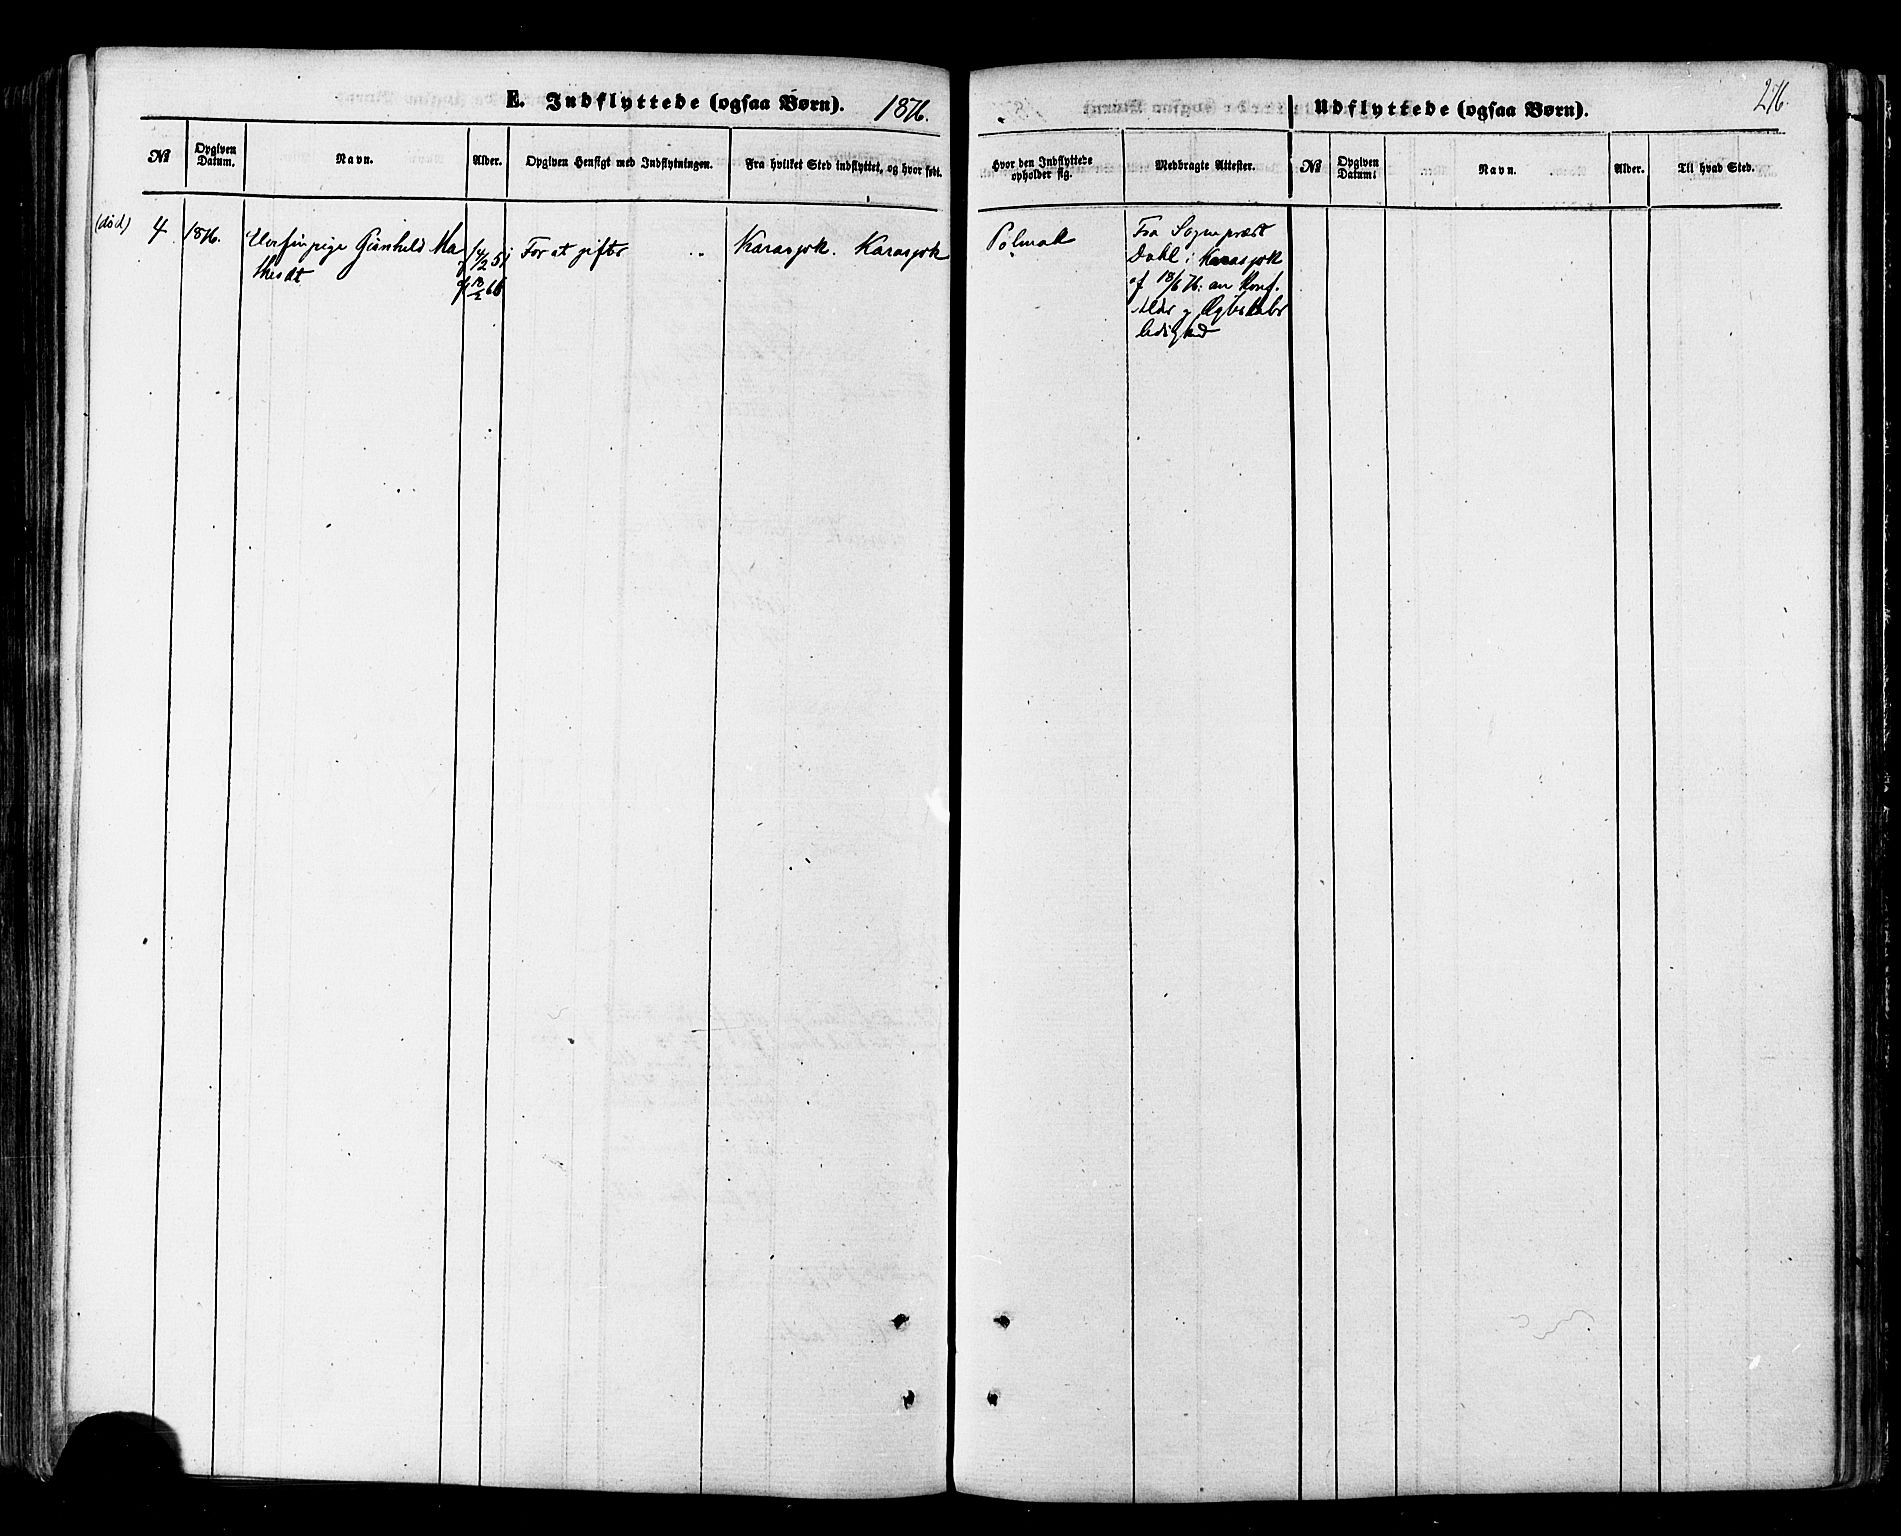 E. Indflyttede (ogsaa Børn). 1876.
Udflyttede (ogsaa Børn). 276.
№ Opgiven Datum. Navn. Alder. Opgiven Hensigt med Indflytningen. Fra hvilket Sted indflyttet, og hvor født.
Hvor den Indflyttede opholder sig. Medbragte Attester. № Opgiven Datum. Navn. Alder. Til hvad Sted.
(død) 4 1876. Gunhild Ma 14/2 51 For at gifte Karasjok. Karasjok
Polmak Fra Sognepræst
Dahl i Karasjok
af 18/6 76. an Konf.
Alder og Ægteskabs
ledighed